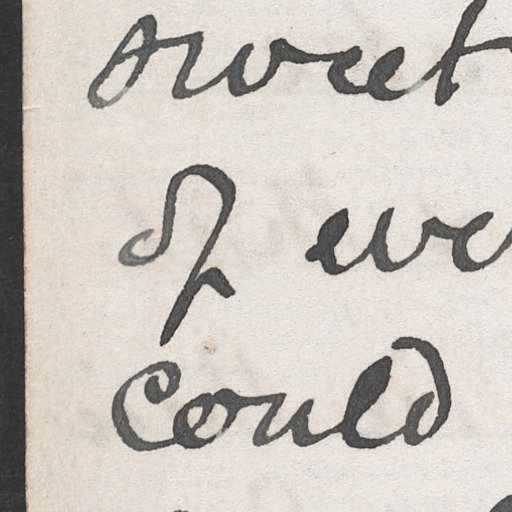 sweet
of eve
could